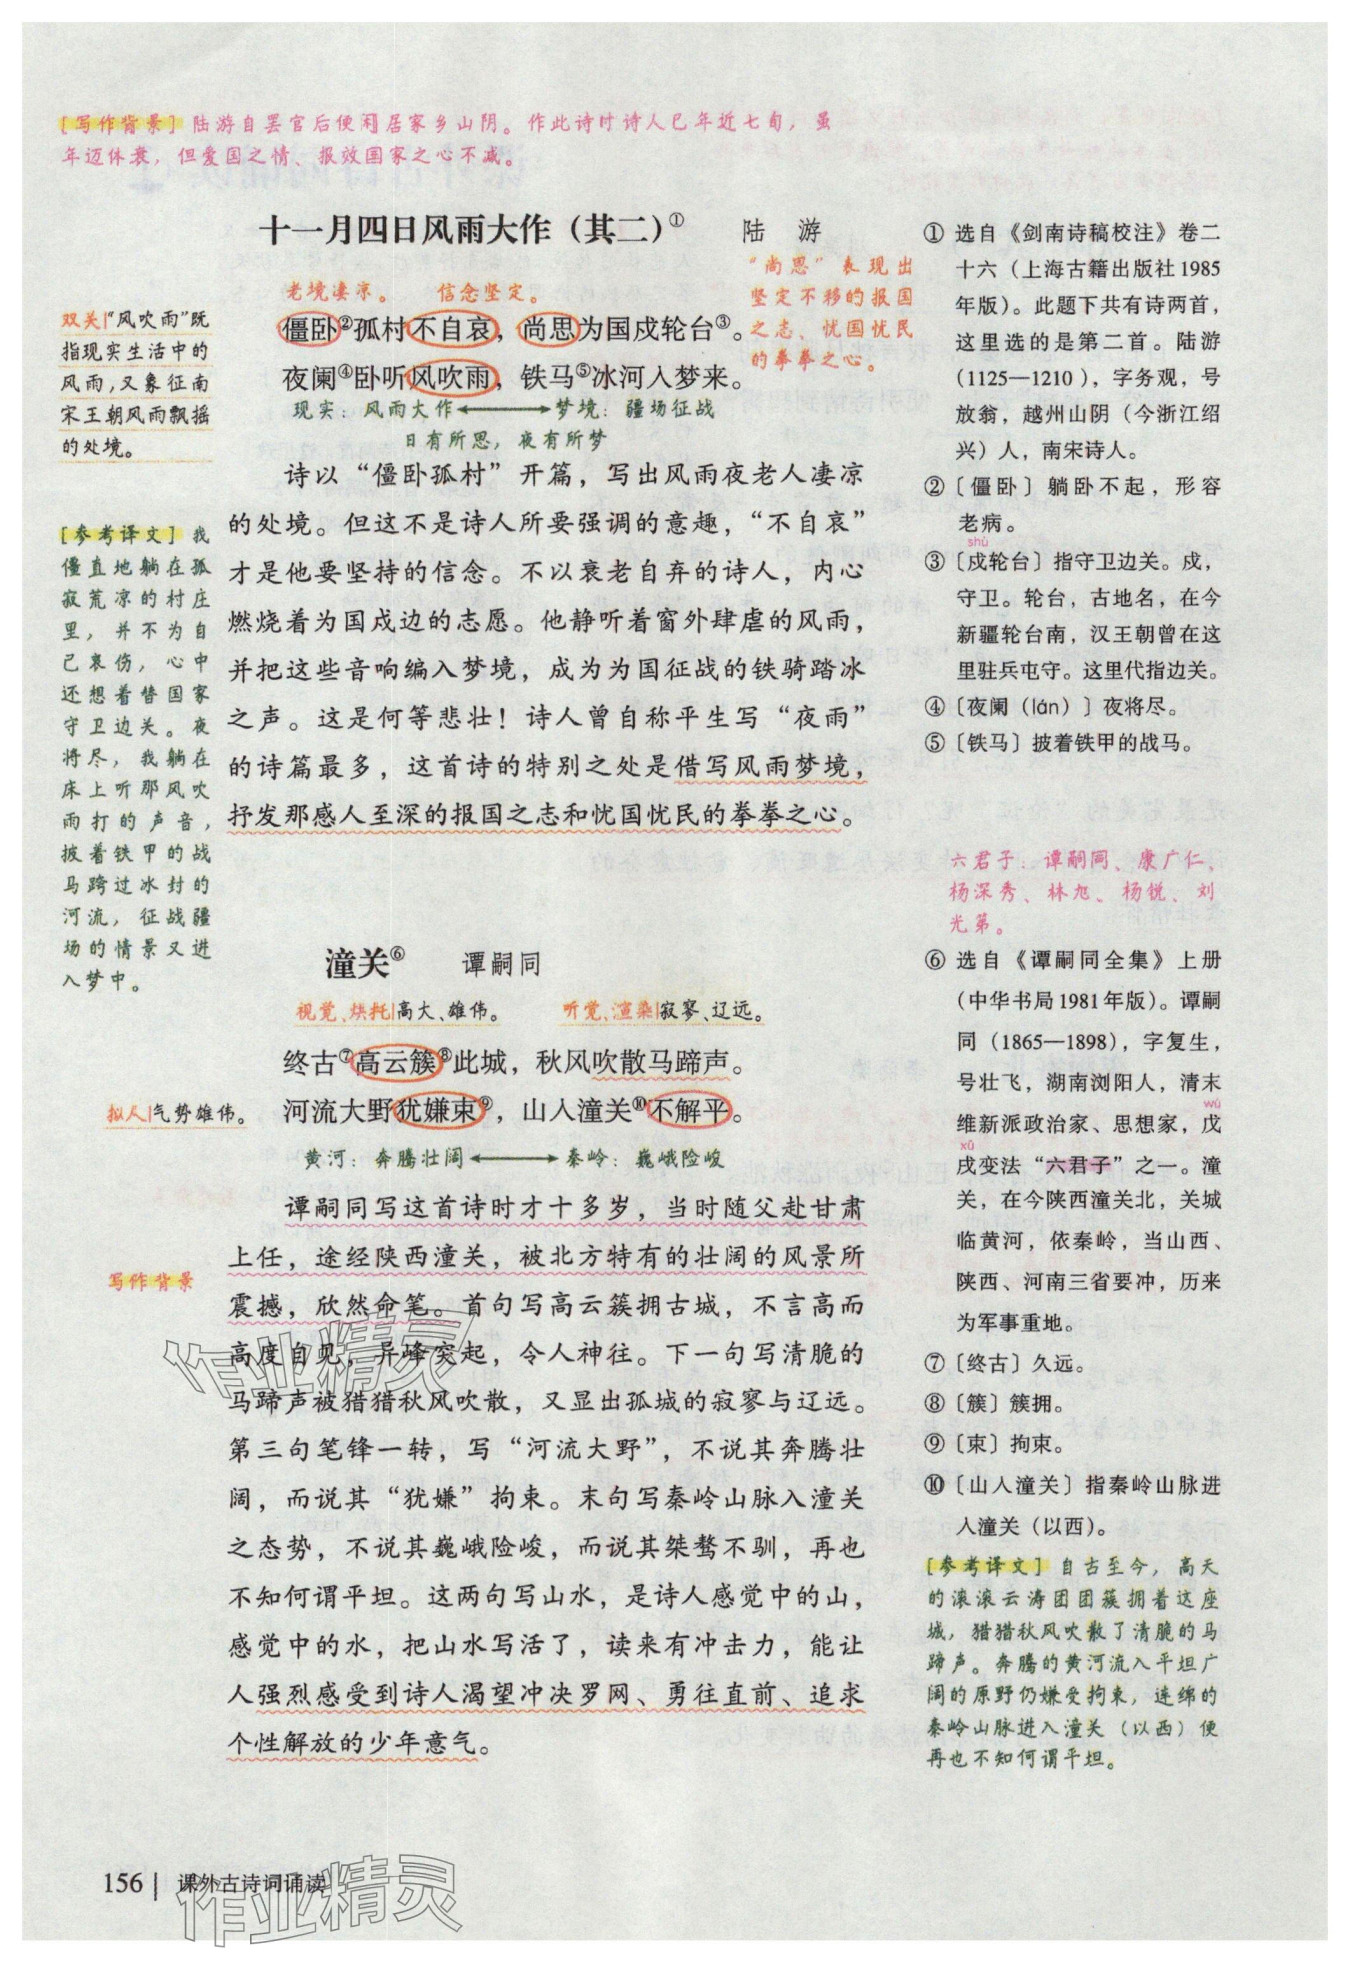 [写作背景] 陆游自罢官后便闲居家乡山阴。作此诗时诗人已年近七旬，虽
年迈体衰，但爱国之情、报效国家之心不减。
十一月四日风雨大作（其二）① 陆 游
老境凄凉。 信念坚定。
僵卧②孤村不自哀，尚思为国戍轮台③。
夜阑④卧听风吹雨，铁马⑤冰河入梦来。
现实：风雨大作 梦境：疆场征战
日有所思，夜有所梦
“尚思”表现出
坚定不移的报国
之志、忧国忧民
的拳拳之心。
双关|“风吹雨”既
指现实生活中的
风雨，又象征南
宋王朝风雨飘摇
的处境。
[参考译文] 我
僵直地躺在孤
寂荒凉的村庄
里，并不为自
己哀伤，心中
还想着替国家
守卫边关。夜
将尽，我躺在
床上听那风吹
雨打的声音，
披着铁甲的战
马跨过冰封的
河流，征战疆
场的情景又进
入梦中。
诗以“僵卧孤村”开篇，写出风雨夜老人凄凉
的处境。但这不是诗人所要强调的意趣，“不自哀”
才是他要坚持的信念。不以衰老自弃的诗人，内心
燃烧着为国戍边的志愿。他静听着窗外肆虐的风雨，
并把这些音响编入梦境，成为为国征战的铁骑踏冰
之声。这是何等悲壮！诗人曾自称平生写“夜雨”
的诗篇最多，这首诗的特别之处是借写风雨梦境，
抒发那感人至深的报国之志和忧国忧民的拳拳之心。
① 选自《剑南诗稿校注》卷二
十六（上海古籍出版社1985
年版）。此题下共有诗两首，
这里选的是第二首。陆游
（1125—1210），字务观，号
放翁，越州山阴（今浙江绍
兴）人，南宋诗人。
②〔僵卧〕躺卧不起，形容
老病。
shù
③〔戍轮台〕指守卫边关。戍，
守卫。轮台，古地名，在今
新疆轮台南，汉王朝曾在这
里驻兵屯守。这里代指边关。
④〔夜阑（lán）〕夜将尽。
⑤〔铁马〕披着铁甲的战马。
潼关⑥ 谭嗣同
视觉、烘托|高大、雄伟。 听觉、渲染|寂寥、辽远。
终古⑦高云簇⑧此城，秋风吹散马蹄声。
拟人|气势雄伟。
河流大野犹嫌束⑨，山入潼关⑩不解平。
黄河：奔腾壮阔 秦岭：巍峨险峻
写作背景
谭嗣同写这首诗时才十多岁，当时随父赴甘肃
上任，途经陕西潼关，被北方特有的壮阔的风景所
震撼，欣然命笔。首句写高云簇拥古城，不言高而
高度自见，异峰突起，令人神往。下一句写清脆的
马蹄声被猎猎秋风吹散，又显出孤城的寂寥与辽远。
第三句笔锋一转，写“河流大野”，不说其奔腾壮
阔，而说其“犹嫌”拘束。末句写秦岭山脉入潼关
之态势，不说其巍峨险峻，而说其桀骜不驯，再也
不知何谓平坦。这两句写山水，是诗人感觉中的山，
感觉中的水，把山水写活了，读来有冲击力，能让
人强烈感受到诗人渴望冲决罗网、勇往直前、追求
个性解放的少年意气。
六君子：谭嗣同、康广仁、
杨深秀、林旭、杨锐、刘
光第。
⑥ 选自《谭嗣同全集》上册
（中华书局1981年版）。谭嗣
同（1865—1898），字复生，
号壮飞，湖南浏阳人，清末
维新派政治家、思想家，戊
wù
xū
戌变法“六君子”之一。潼
关，在今陕西潼关北，关城
临黄河，依秦岭，当山西、
陕西、河南三省要冲，历来
为军事重地。
⑦〔终古〕久远。
⑧〔簇〕簇拥。
⑨〔束〕拘束。
⑩〔山入潼关〕指秦岭山脉进
入潼关（以西）。
[参考译文] 自古至今，高天
的滚滚云涛团团簇拥着这座
城，猎猎秋风吹散了清脆的马
蹄声。奔腾的黄河流入平坦广
阔的原野仍嫌受拘束，连绵的
秦岭山脉进入潼关（以西）便
再也不知何谓平坦。
作业精灵
156 课外古诗词诵读
作业精灵